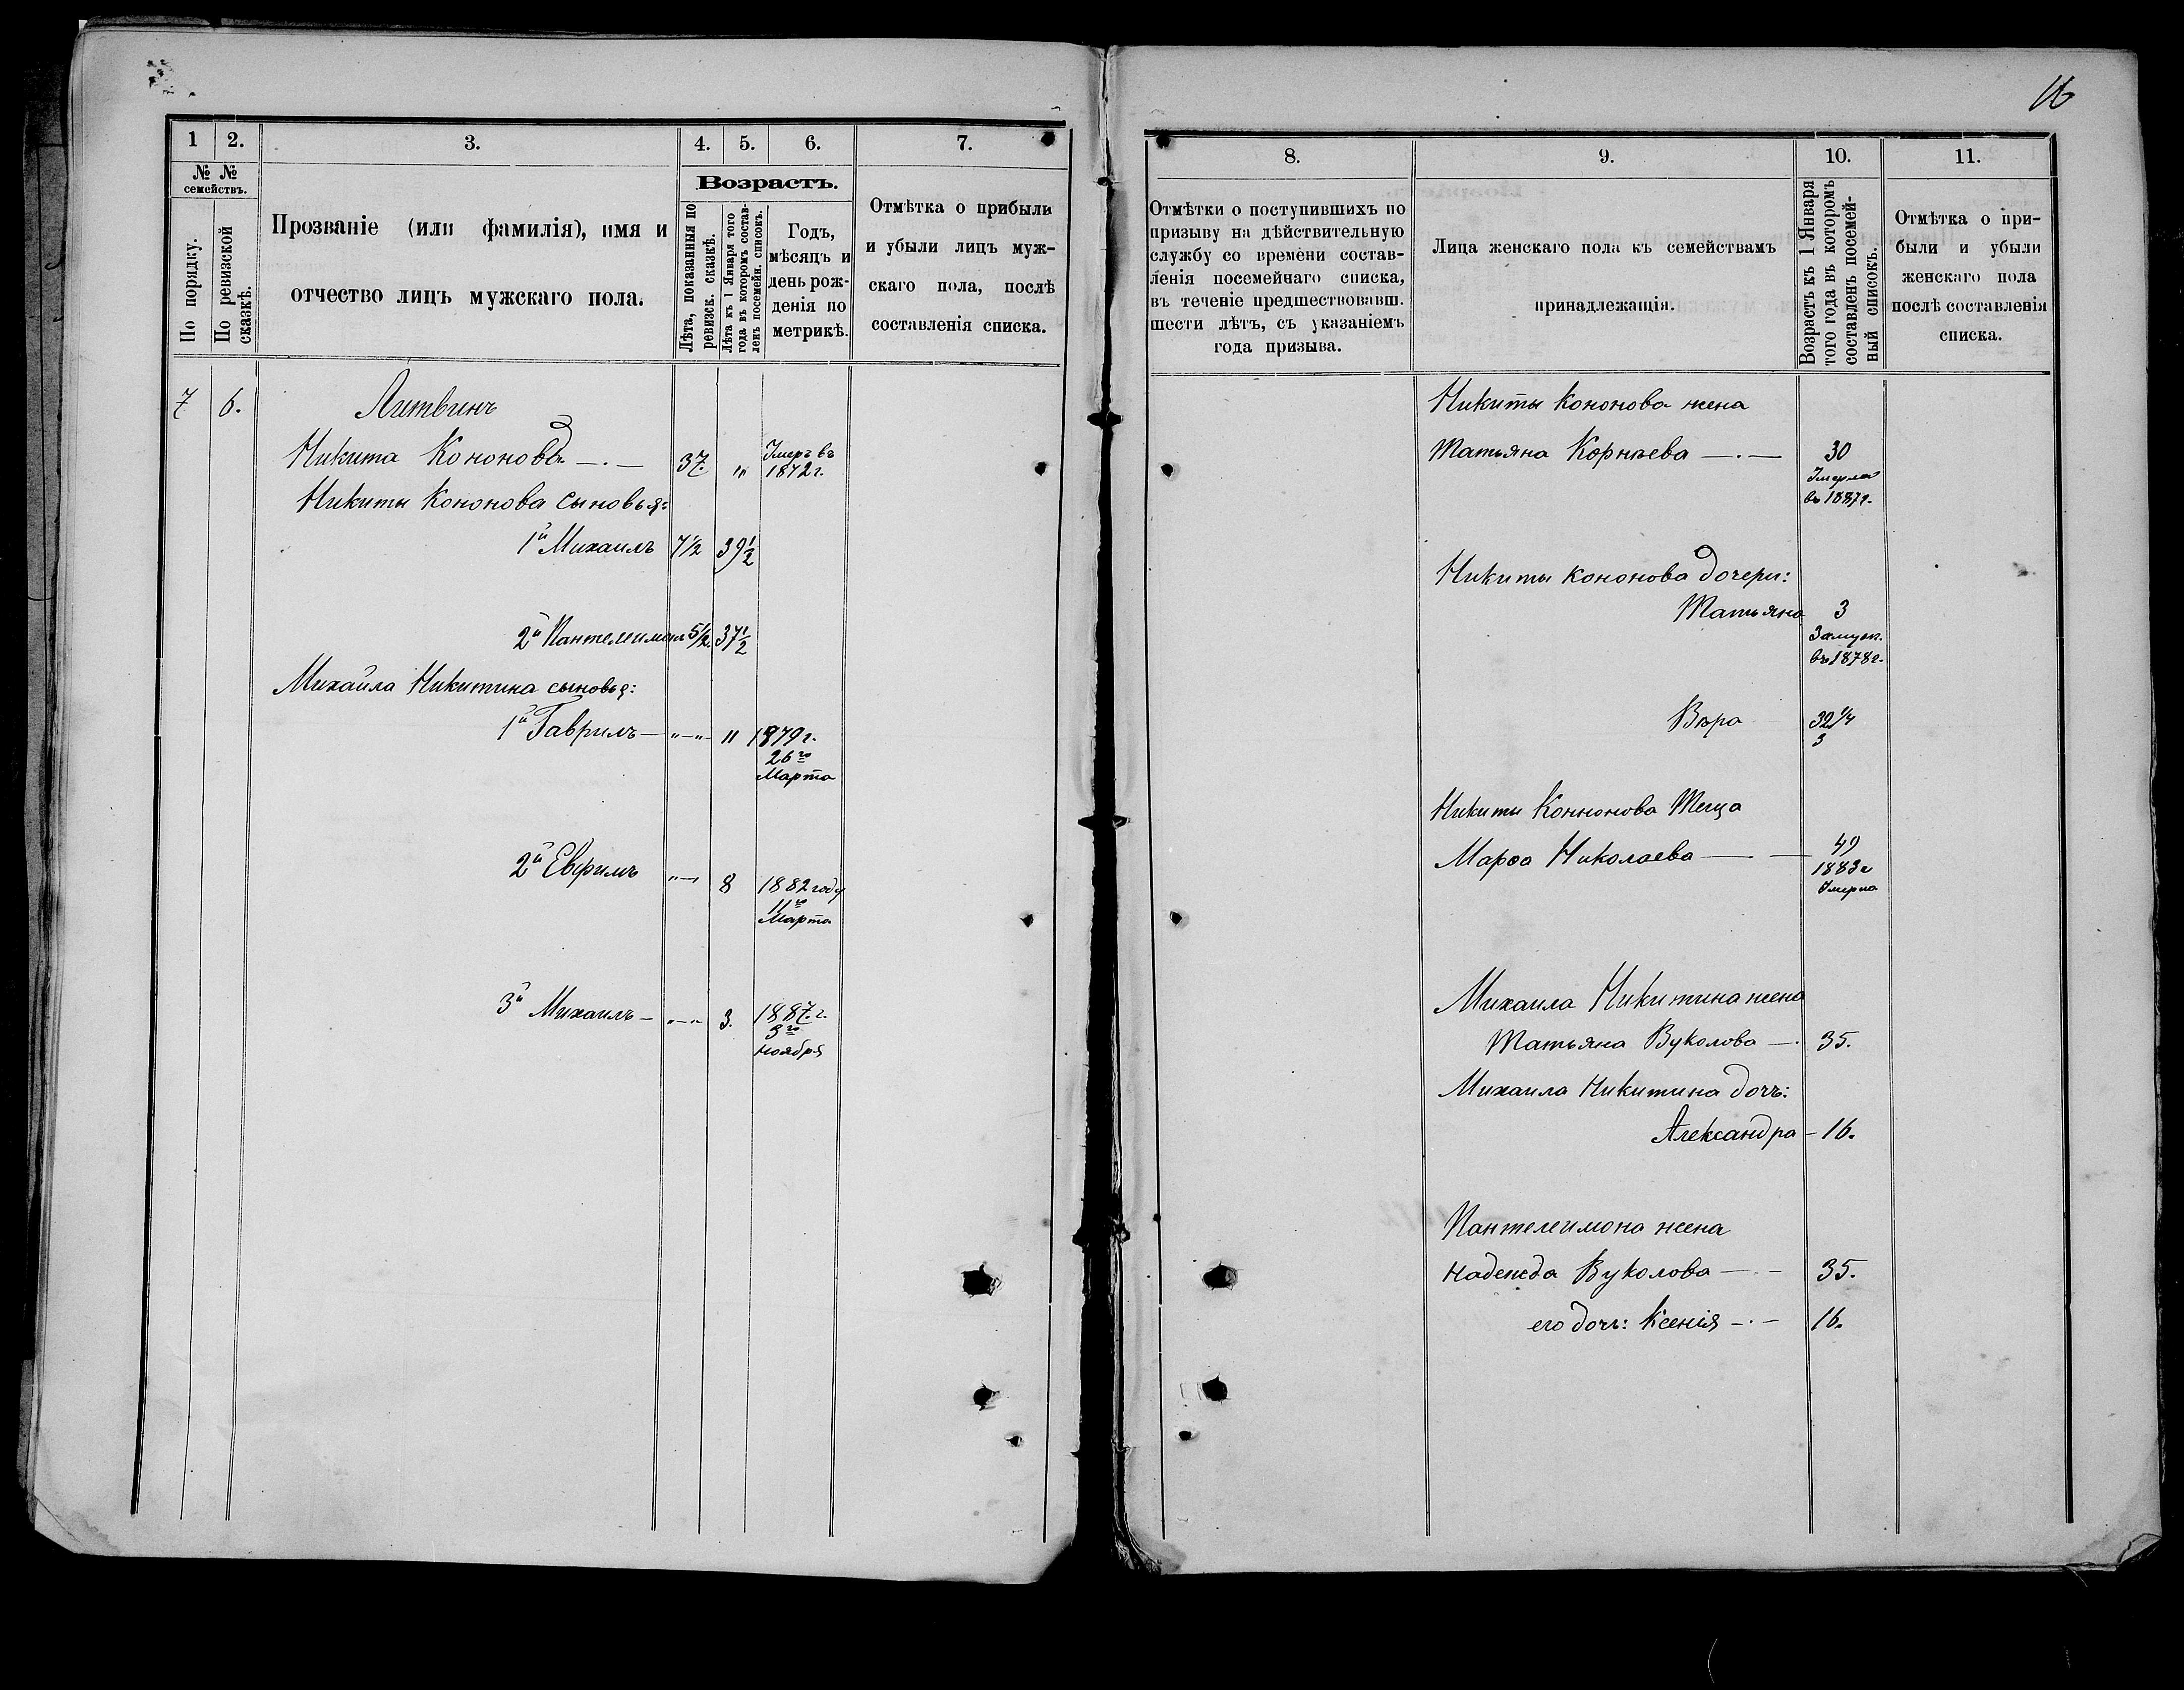 16
1 2. 3. 4. 5. 6. 7.
№ №
семействъ.
По порядку.
По ревизской
сказкѣ.
Прозваніе (или фамилія), имя и
отчество лицъ мужскаго пола.
Возрастъ.
Лѣта, показанныя по
ревизск. сказкѣ.
Лѣта къ 1 Января того
года въ которомъ состав-
ленъ посемейн. списокъ.
Годъ,
мѣсяцъ и
день рож-
денія по
метрикѣ.
Отмѣтка о прибыли
и убыли лицъ муж-
скаго пола, послѣ
составленія списка.
7 6. Литвинъ
Никита Кононовъ — . — 37. " Умеръ въ
1872 г.
Никиты Кононова сыновья:
1й Михаилъ 7 1/2 39 1/2
2й Пантелеимонъ 5 1/2 37 1/2
Михаила Никитина сыновья:
1й Гаврилъ — "—" 11 1879 г.
26го
Марта
2й Евфимъ "—" 8 1882 году
11го
Марта
3й Михаилъ — "—" 3. 1887. г.
3го
Ноября
8. 9. 10. 11.
Отмѣтки о поступившихъ по
призыву на дѣйствительную
службу со времени состав-
ленія посемейнаго списка,
въ теченіе предшествовавш.
шести лѣтъ, съ указаніемъ
года призыва.
Лица женскаго пола къ семействамъ
принадлежащія.
Возрастъ къ 1 Января
того года въ которомъ
составленъ посемей-
ный списокъ.
Отмѣтка о при-
были и убыли
женскаго пола
послѣ составленія
списка.
Никиты Кононова жена
Татьяна Корнѣева — . — 30
Умерла
въ 1887 г.
Никиты Кононова дочери:
Татьяна 3
Замуж.
въ 1878 г.
Вѣра 32 1/4
3
Никиты Кононова Теща
Марѳа Николаева — — 49
1883 г
Умерла
Михаила Никитина жена
Татьяна Вуколова — . 35.
Михаила Никитина дочь:
Александра — 16.
Пантелеимона жена
Надежда Вуколова — . — 35.
его дочь: Ксенія — . — 16.